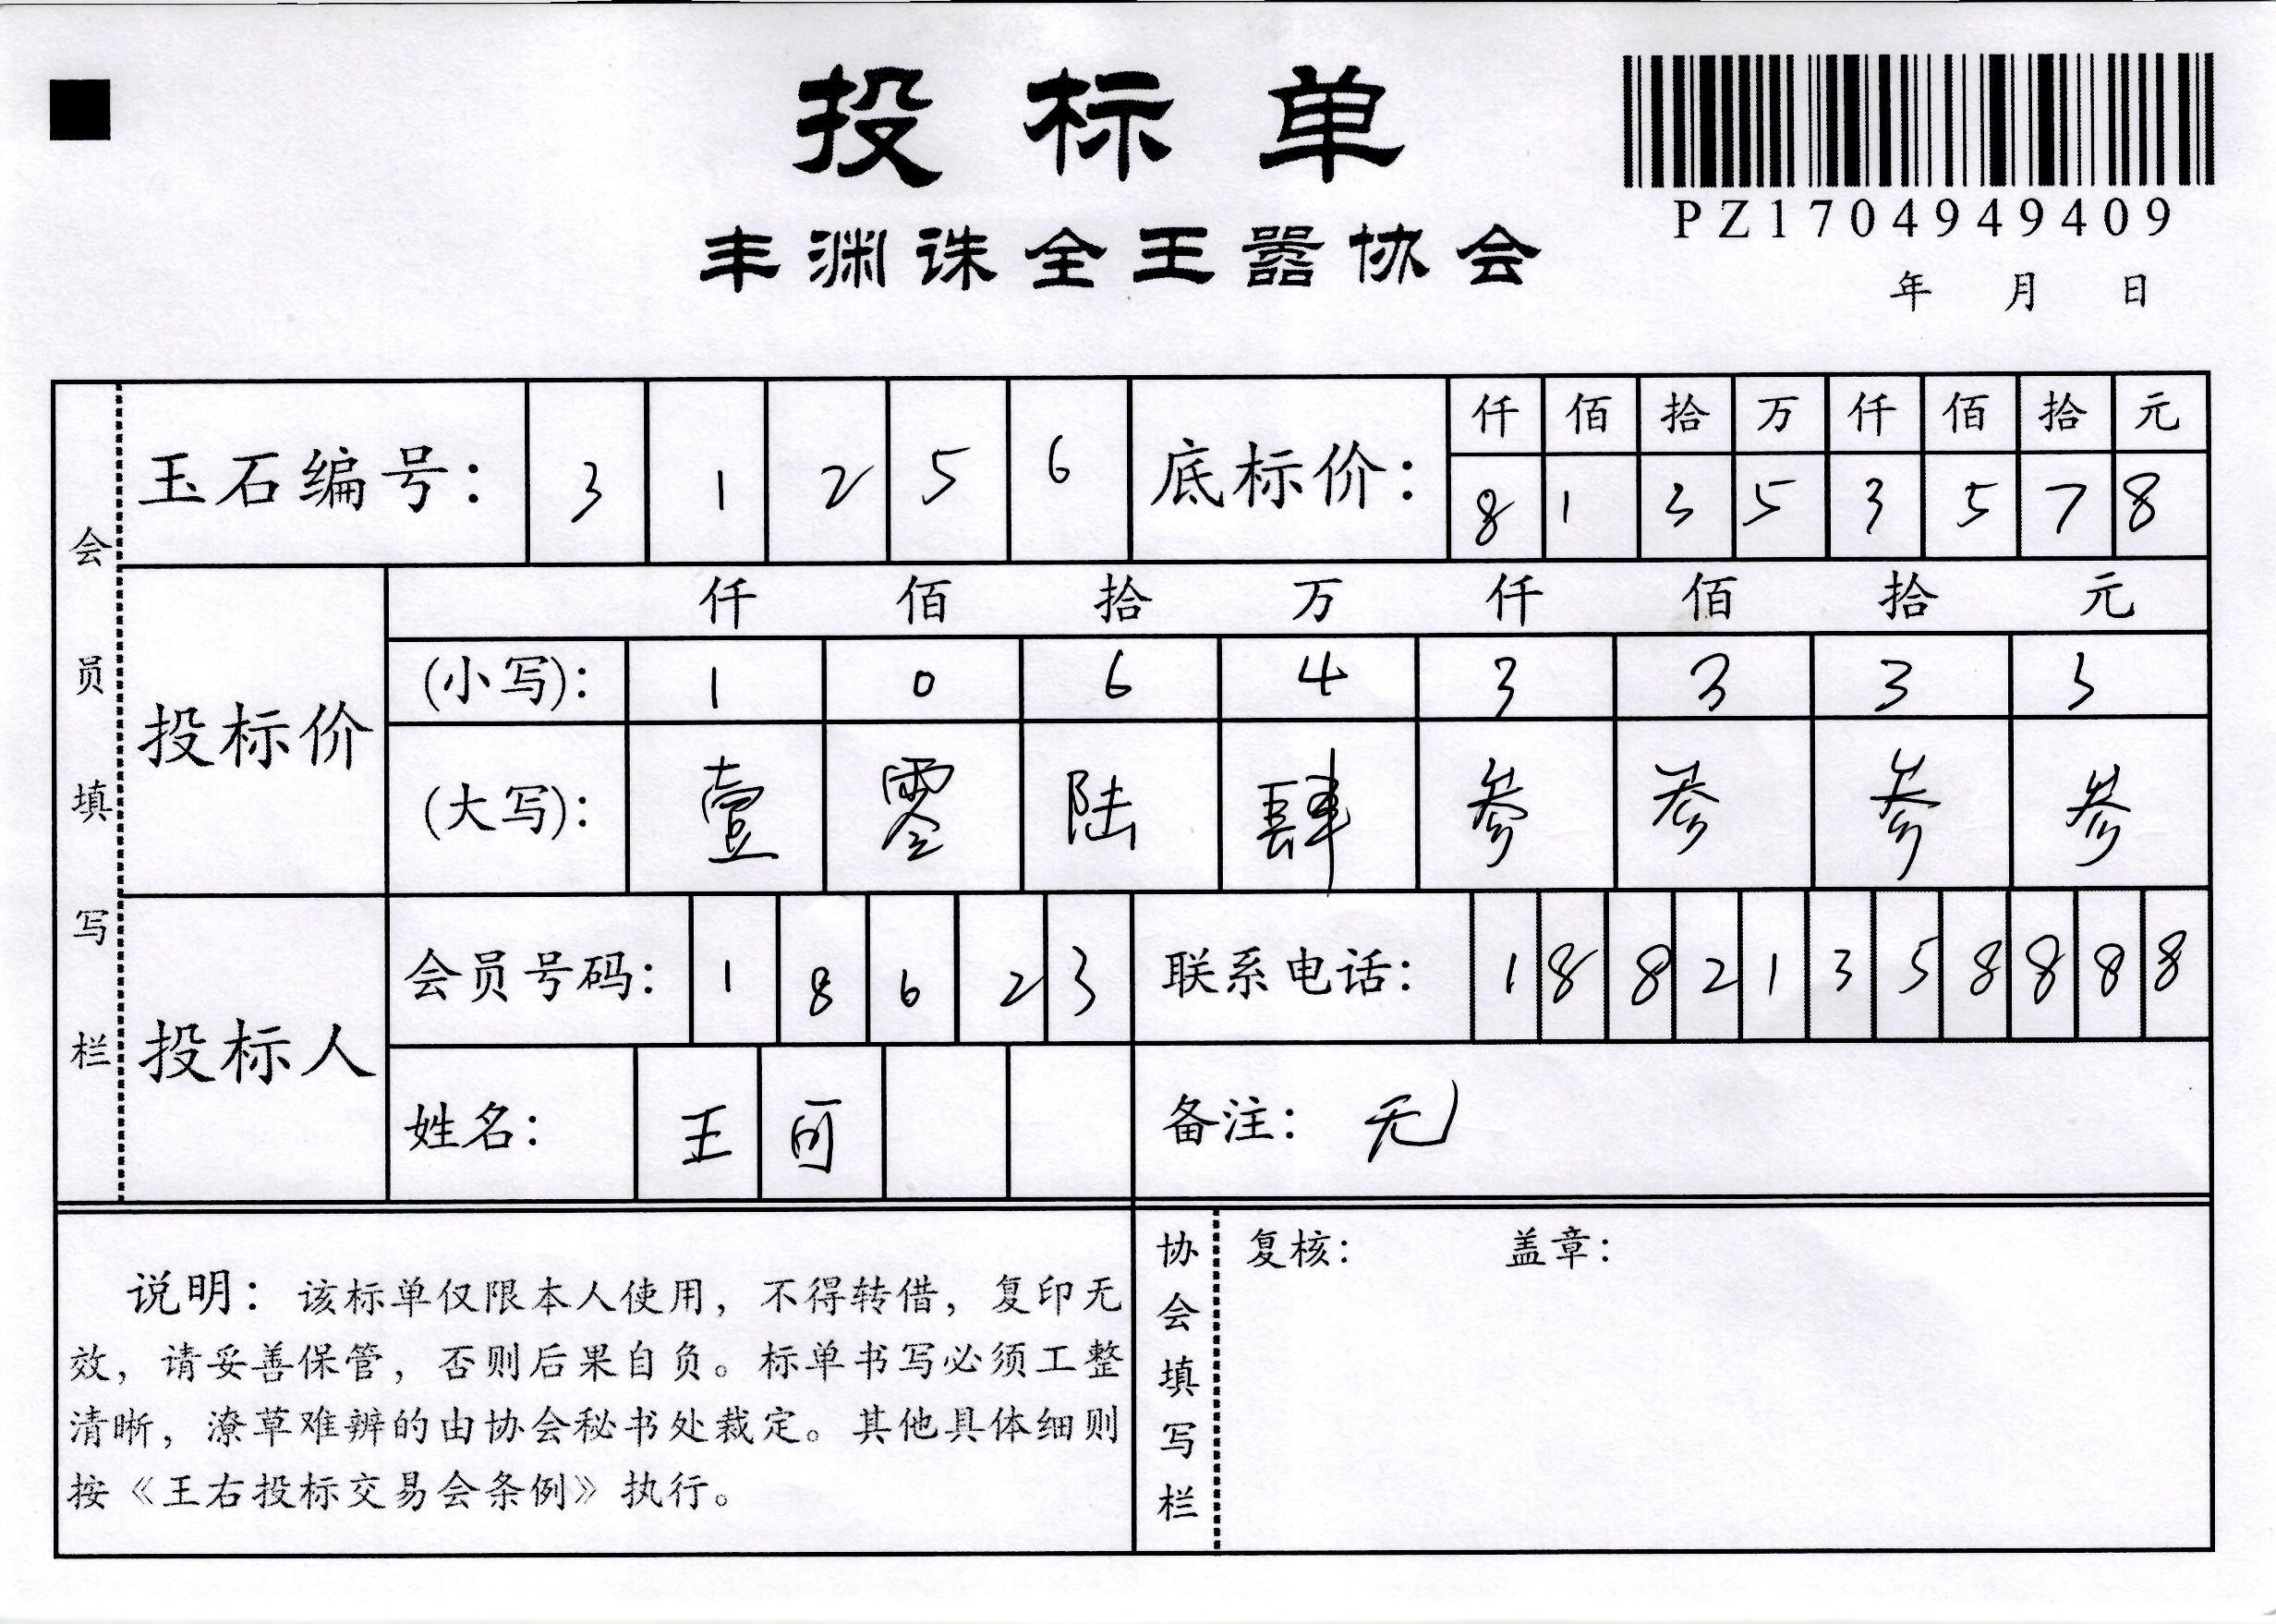 投标单
PZ1704949409
丰渊诛全王嚣协会
年 月 日
会员填写栏
玉石编号: 3 1 2 5 6
底标价: 仟 佰 拾 万 仟 佰 拾 元
8 1 3 5 3 5 7 8
投标价
仟 佰 拾 万 仟 佰 拾 元
(小写): 1 0 6 4 3 3 3 3
(大写): 壹 零 陆 肆 参 参 参 参
投标人
会员号码: 1 8 6 2 3
联系电话: 1 8 8 2 1 3 5 8 8 8 8
姓名: 王
备注: 无
说明：该标单仅限本人使用，不得转借，复印无
效，请妥善保管，否则后果自负。标单书写必须工整
清晰，潦草难辨的由协会秘书处裁定。其他具体细则
按《王右投标交易会条例》执行。
协会填写栏
复核: 盖章: